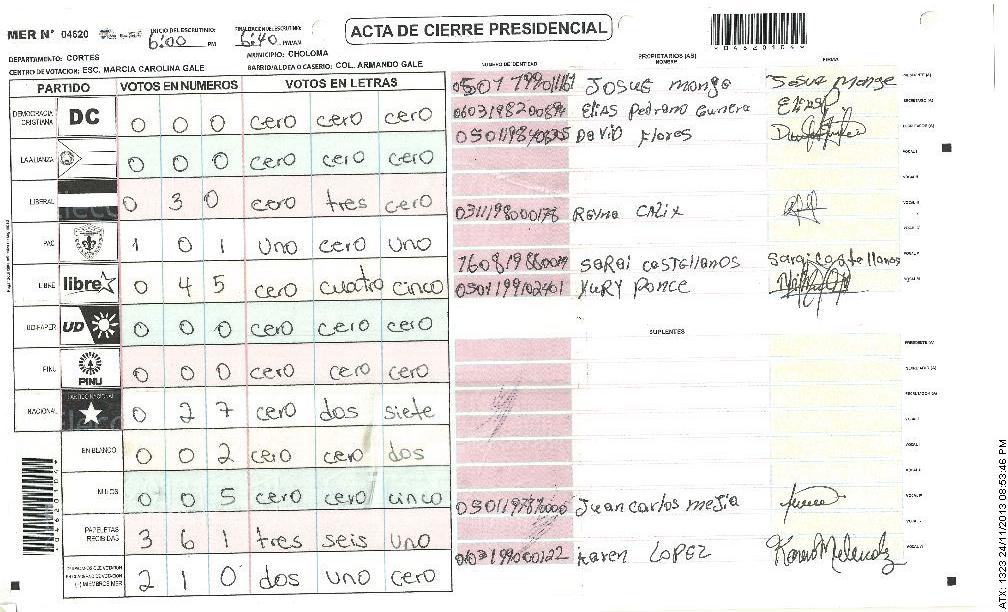 MER Nº 04620
INICIO DEL ESCRUTINIO: 6:00 PM
FINALIZACION DEL ESCRUTINIO: 6:40 PM/AM
ACTA DE CIERRE PRESIDENCIAL
DEPARTAMENTO: CORTES
MUNICIPIO: CHOLOMA
CENTRO DE VOTACION: ESC. MARCIA CAROLINA GALE
BARRIO/ALDEA O CASERIO: COL. ARMANDO GALE
PARTIDO VOTOS EN NUMEROS VOTOS EN LETRAS
DEMOCRACIA CRISTIANA DC 0 0 0 cero cero cero
LA ALIANZA 0 0 0 cero cero cero
LIBERAL 0 3 0 cero tres cero
PAC 1 0 1 uno cero uno
LIBRE libre 0 4 5 cero cuatro cinco
UD-FAPER UD 0 0 0 cero cero cero
PINU PINU 0 0 0 cero cero cero
NACIONAL PARTIDO NACIONAL 0 2 7 cero dos siete
EN BLANCO 0 0 2 cero cero dos
NULOS 0 0 5 cero cero cinco
PAPELETAS RECIBIDAS 3 6 1 tres seis uno
2 1 0 dos uno cero
NUMERO DE IDENTIDAD PROPIETARIOS (AS) NOMBRE FIRMA
Josue monge Josue monge PRESIDENTE (A)
Elias Pedrano Gunera Elias P SECRETARIO (A)
David Flores
VOCAL I
VOCAL II
0311198000178 Reyna Calix
sarai castellanos Sarai castellanos
0501199102401 YURY Ponce
SUPLENTES
PRESIDENTE (A)
SECRETARIO (A)
VOCAL I
Juan carlos mejia
karen LOPEZ
ATX: 1323 24/11/2013 08:53:46 PM